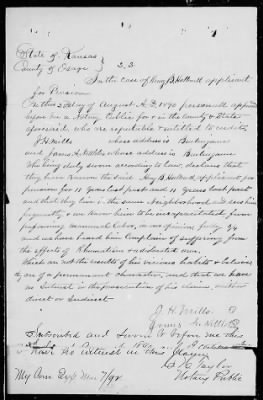 State of Kansas
County of Osage } S.S.
In the case of Henry B. applicant
for Pension
On this day of August A.D. 1890 personally appeared
before me a Notary Public for in the county & State
aforesaid, who are reputable & entitled to credit,
J H Mills whose address is Burlingame
and whose address is Burlingame
Who being duly sworn according to law, declare that
they have known the said Henry B. applicant for
pension for 11 years last past and 11 years last past
and that they live in the same Neighborhood and see him
frequently, & we know him to be incapacitated from
performing manual labor, in our opinion fully 3/4
and we have heard him Complain of suffering from
the effects of Rheumatism and
which are not the results of his vicious habits &
of a permanent character, and that we have
no interest in the prosecution of his claim, either
direct or indirect
J. H. Mills
Subscribed and sworn to before me this
I have no interest in this Claim
Taylor
My Com Exp 7/92 Notary Public